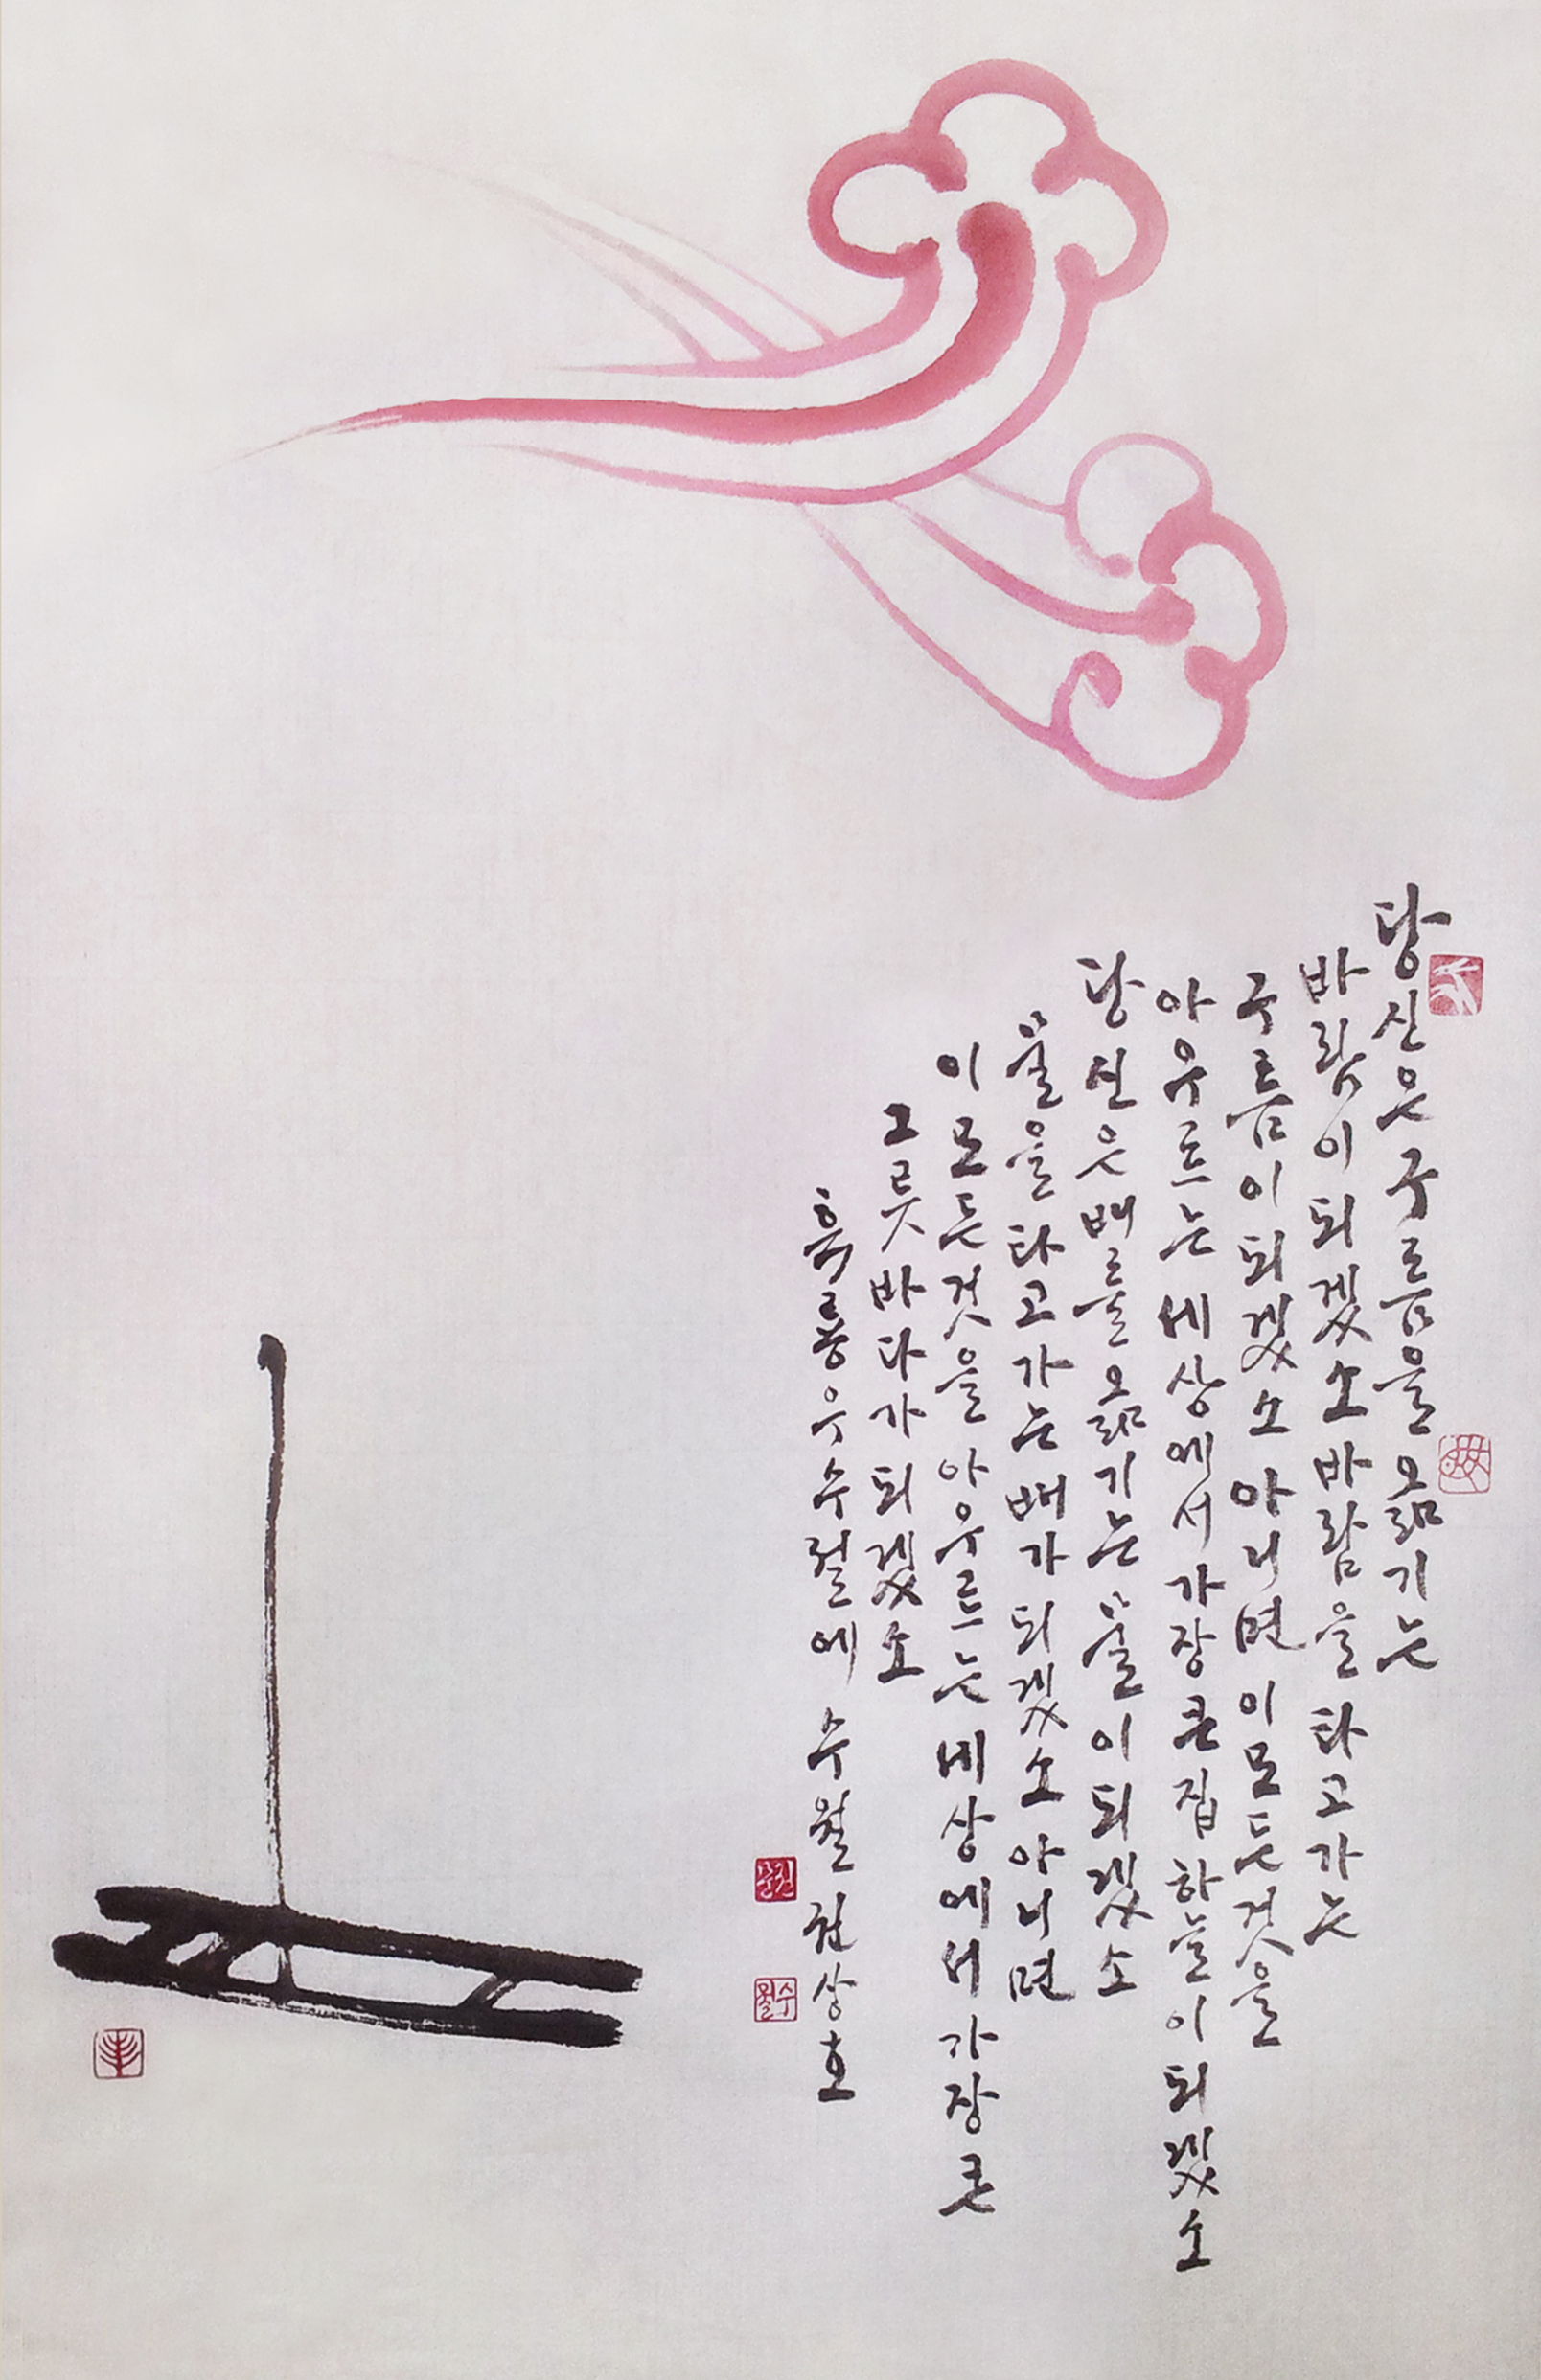 당신은 구름을 옮기는
바람이 되겠소 바람을 타고 가는
구름이 되겠소 아니면 이 모든 것을
아우르는 세상에서 가장 큰 집 하늘이 되겠소
당신은 배를 옮기는 물이 되겠소
물을 타고 가는 배가 되겠소 아니면
이 모든 것을 아우르는 세상에서 가장 큰
그릇 바다가 되겠소
흑룡 우수절에 수월 권상호
수월